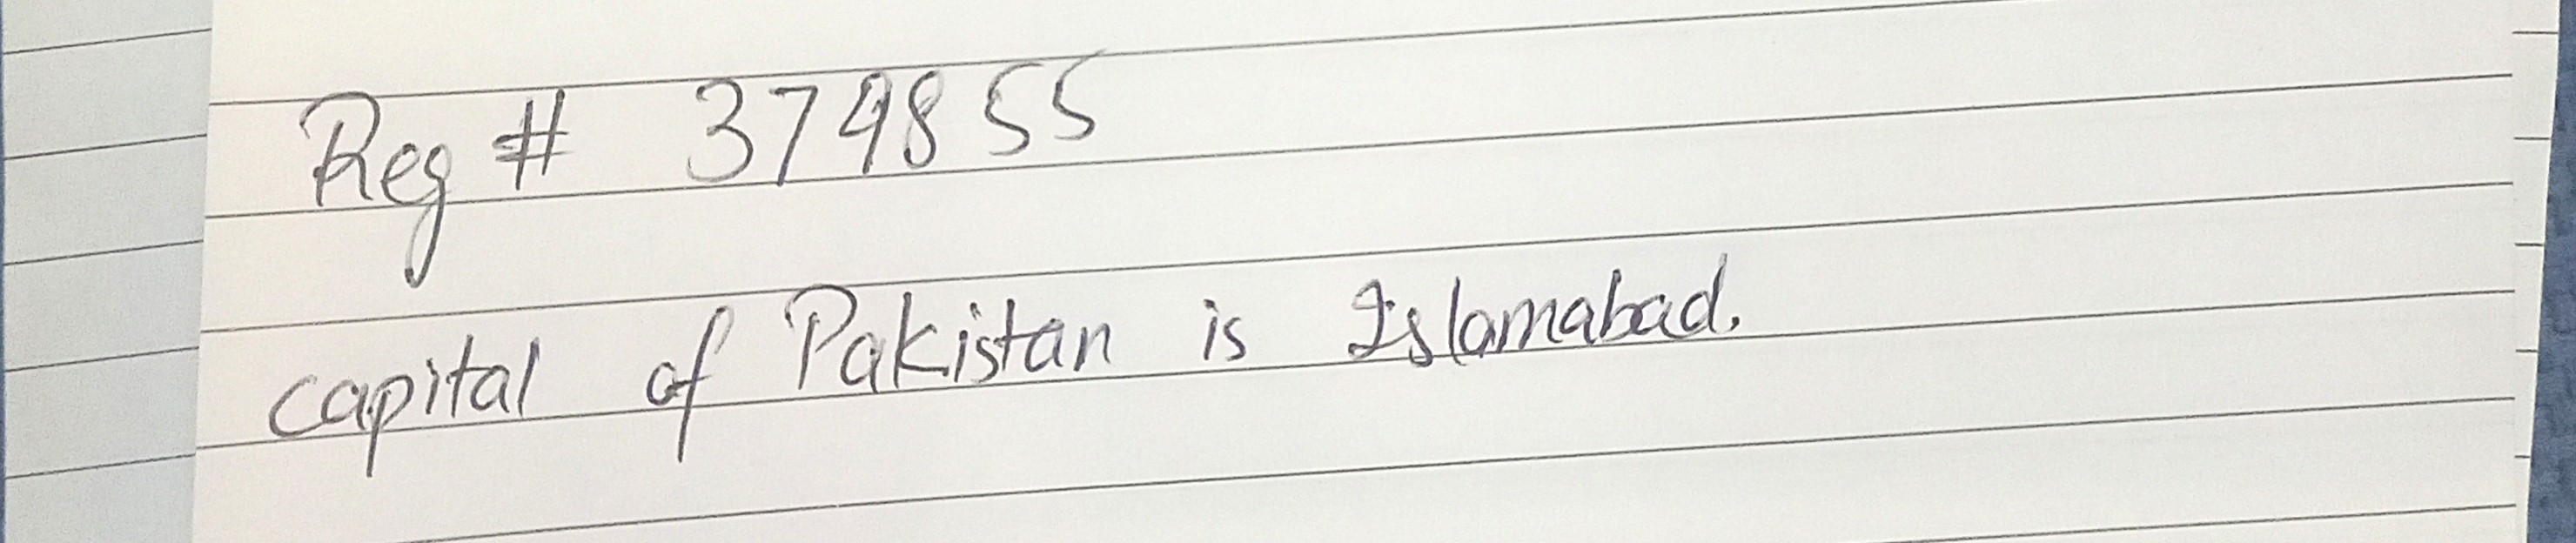 Reg # 379855
capital of Pakistan is Islamabad.